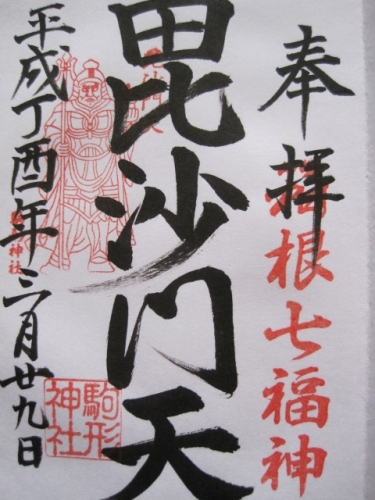 奉拝
箱根七福神
毘沙門天
平成丁酉年三月廿九日
駒形
神社